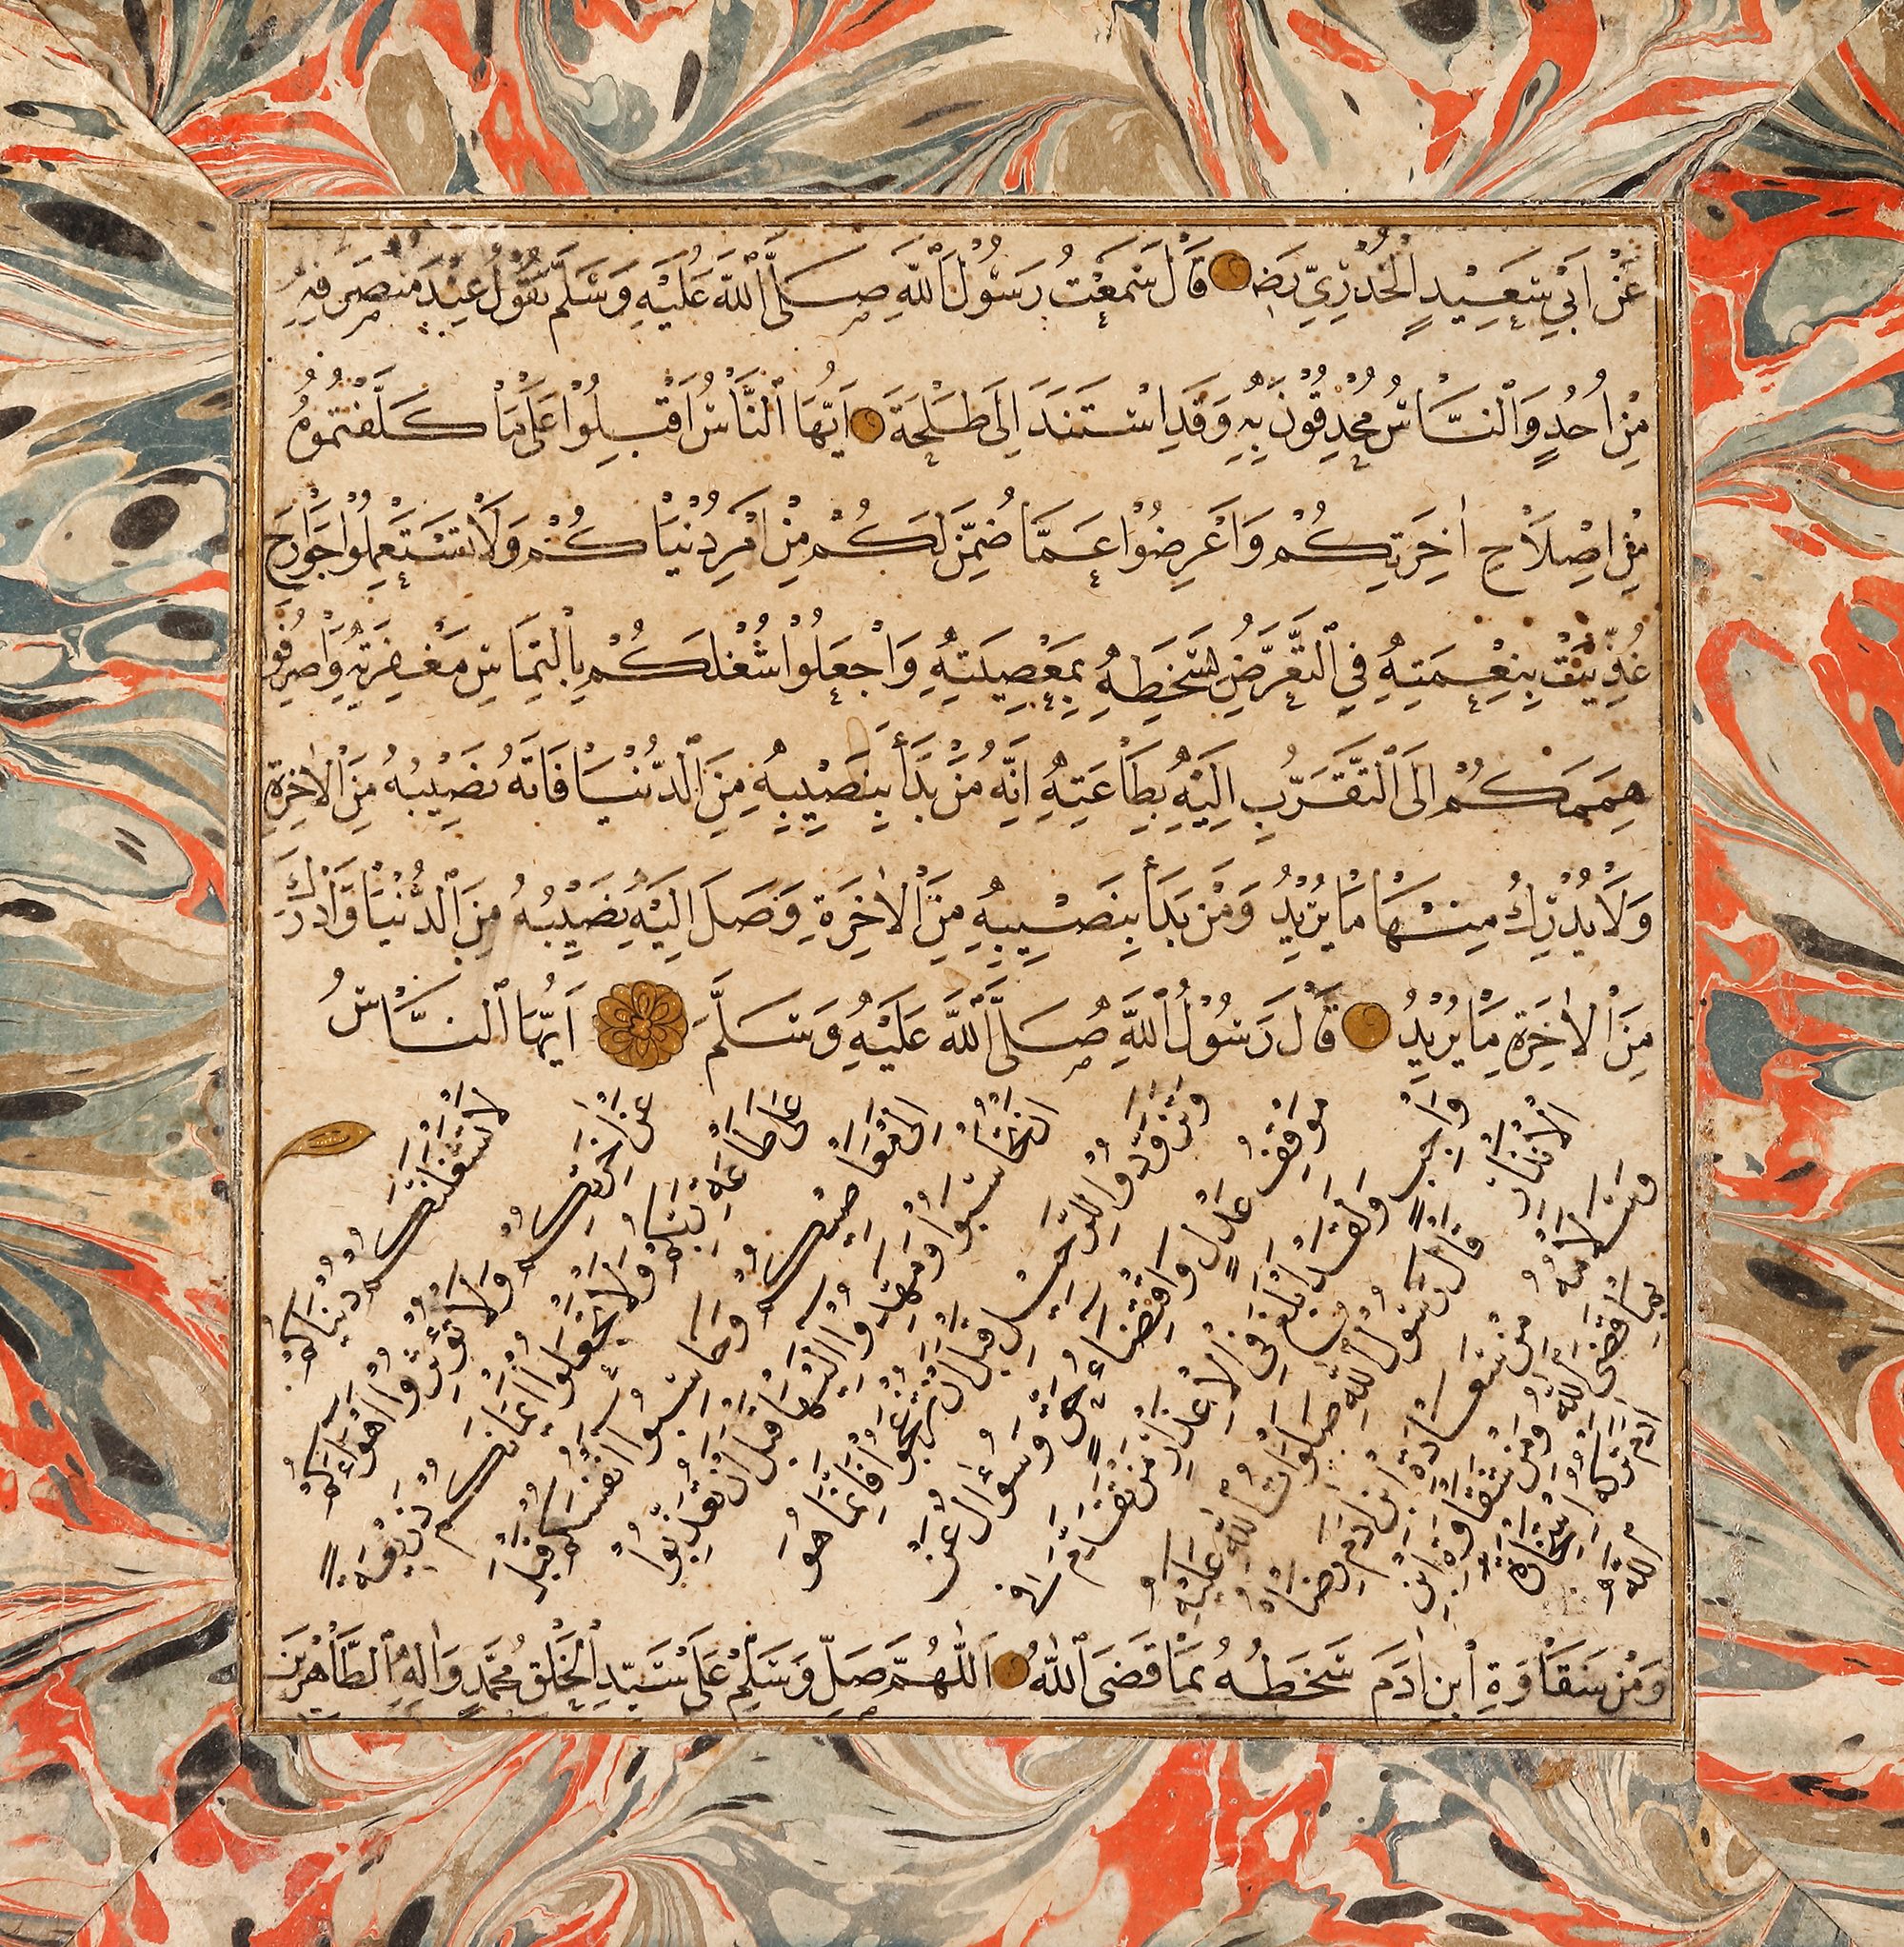 عَنْ اَبِيْ سَعِيْدٍ الْخُدْرِيِّ رَضِ قَالَ سَمِعْتُ رَسُوْلَ اللهِ صَلَّى اللهُ عَلَيْهِ وَسَلَّمَ يَقُوْلُ عِنْدَ مُنْصَرَفِهِ
مِنْ اُحُدٍ وَالنَّاسُ مُحْدِقُوْنَ بِهِ وَقَدِ اسْتَنَدَ اِلَى طَلْحَةَ اَيُّهَا النَّاسُ اَقْبِلُوْا عَلَى مَا كَلَّفْتُمُوْهُ
مِنْ اِصْلَاحِ اٰخِرَتِكُمْ وَاَعْرِضُوْا عَمَّا ضُمِنَ لَكُمْ مِنْ اَمْرِ دُنْيَاكُمْ وَلَا تَسْتَعْمِلُوْا جَوَارِحَ
غُذِّيَتْ بِنِعْمَتِهِ فِي التَّعَرُّضِ لِسَخَطِهِ بِمَعْصِيَتِهِ وَاجْعَلُوْا شُغْلَكُمْ بِالْتِمَاسِ مَغْفِرَتِهِ وَاصْرِفُوْا
هِمَمَكُمْ اِلَى التَّقَرُّبِ اِلَيْهِ بِطَاعَتِهِ اِنَّهُ مَنْ بَدَأَ بِنَصِيْبِهِ مِنَ الدُّنْيَا فَاتَهُ نَصِيْبُهُ مِنَ الْاٰخِرَةِ
وَلَا يُدْرِكُ مِنْهَا مَا يُرِيْدُ وَمَنْ بَدَأَ بِنَصِيْبِهِ مِنَ الْاٰخِرَةِ وَصَلَ اِلَيْهِ نَصِيْبُهُ مِنَ الدُّنْيَا وَاَدْرَكَ
مِنَ الْاٰخِرَةِ مَا يُرِيْدُ قَالَ رَسُوْلُ اللهِ صَلَّى اللهُ عَلَيْهِ وَسَلَّمَ اَيُّهَا النَّاسُ
لَا تَشْغَلَنَّكُمْ دُنْيَاكُمْ
عَنْ اٰخِرَتِكُمْ وَلَا تُؤْثِرُوْا اَهْوَاءَكُمْ
عَلَى طَاعَةِ رَبِّكُمْ وَلَا تَجْعَلُوْا اَيْمَانَكُمْ ذَرِيْعَةً
اِلَى مَعَاصِيْكُمْ وَحَاسِبُوْا اَنْفُسَكُمْ قَبْلَ
اَنْ تُحَاسَبُوْا وَمَهِّدُوْا لَهَا قَبْلَ اَنْ تُعَذَّبُوْا
وَتَزَوَّدُوْا لِلرَّحِيْلِ قَبْلَ اَنْ تُزْعَجُوْا فَاِنَّمَا هُوَ
مَوْقِفُ عَدْلٍ وَاقْتِضَاءُ حَقٍّ وَسُؤَالٌ عَنْ
وَاجِبٍ وَلَقَدْ اَبْلَغَ فِي الْاِعْذَارِ مَنْ تَقَدَّمَ فِي
الْاِنْذَارِ قَالَ رَسُوْلُ اللهِ صَلَوَاتُ اللهِ عَلَيْهِ
وَسَلَامُهُ مِنْ سَعَادَةِ ابْنِ اٰدَمَ رِضَاهُ
بِمَا قَضَى اللهُ وَمِنْ شَقَاوَةِ ابْنِ
اٰدَمَ تَرْكُهُ اسْتِخَارَةَ
اللهِ
وَمِنْ شَقَاوَةِ ابْنِ اٰدَمَ سَخَطُهُ بِمَا قَضَى اللهُ اَللّٰهُمَّ صَلِّ وَسَلِّمْ عَلَى سَيِّدِ الْخَلْقِ مُحَمَّدٍ وَاٰلِهِ الطَّاهِرِيْنَ